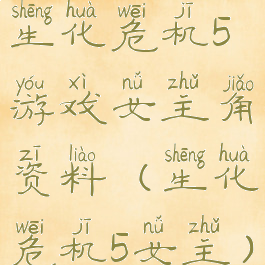 shēng huà wēi jī
生化危机5
yóu xì nǚ zhǔ jiǎo
游戏女主角
zī liào shēng huà
资料(生化
wēi jī nǚ zhǔ
危机5女主)